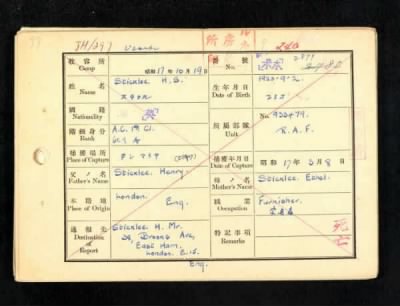 JH/297
收容所 Camp
昭和17年10月19日
番號 No.
姓名 Name
Sticklee H. S.
生年月日 Date of Birth
國籍 Nationality
英
所屬部隊 Unit
No 922479.
R.A.F.
階級身分 Rank
捕獲場所 Place of Capture
捕獲年月日 Date of Capture
昭和 17年3月8日
父ノ名 Father's Name
Sticklee. Henry.
母ノ名 Mother's Name
Sticklee. Ethel.
本籍地 Place of Origin
London. Eng.
職業 Occupation
Furnisher.
通報先 Destination of Report
Sticklee H. Mr.
Ave,
East Ham,
London. E.
Eng.
特記事項 Remarks
死亡